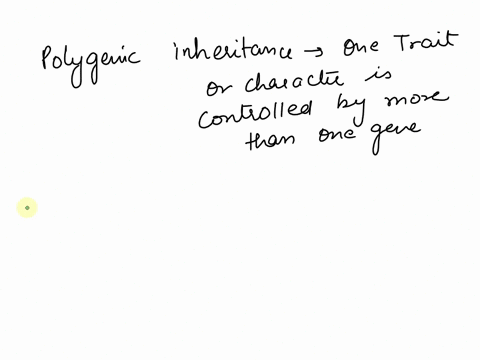 Polygenic inheritance → One Trait
or character is
controlled by more
than one gene